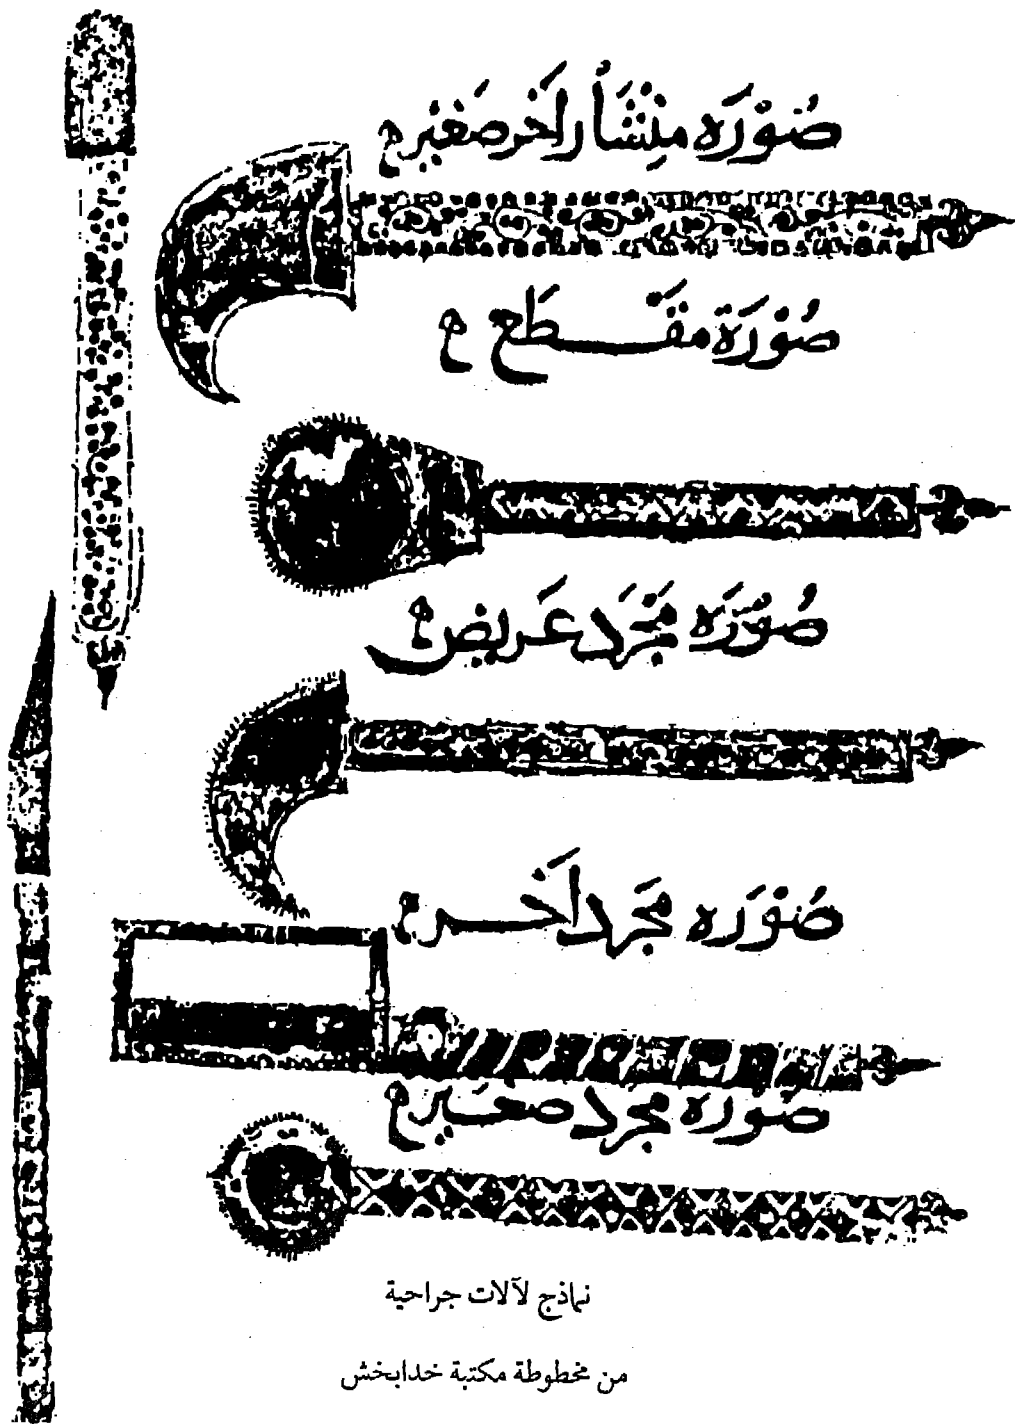 صُوْرَه مِنْشَأر اَخَر صَغيْر
صُوْرَة مقَطَع
صُوْرَه مجْرَد عَريض
صُوْرَه مجَرد اَخر
صُوْرَه مجرَد صغَير
نماذج لآلات جراحية
من مخطوطة مكتبة خدابخش